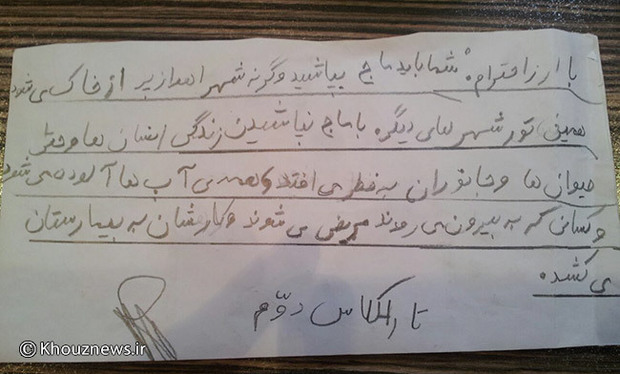 با ارز احترام: شما باید ماچ بپاشید وگرنه شهر اهواز پر از خاک می شود
همین تور شهر های دیگره با ماچ نپاشیدن زندگی انسان ها و حتی
حیوان ها و جانوران به خطر می افتد و همه ی آب ها آلوده می شود
و کسانی که به بیرون می روند مریض می شوند و کارشان به بیمارستان
می کشده
تارا کلاس دوّم
© Khouznews.ir